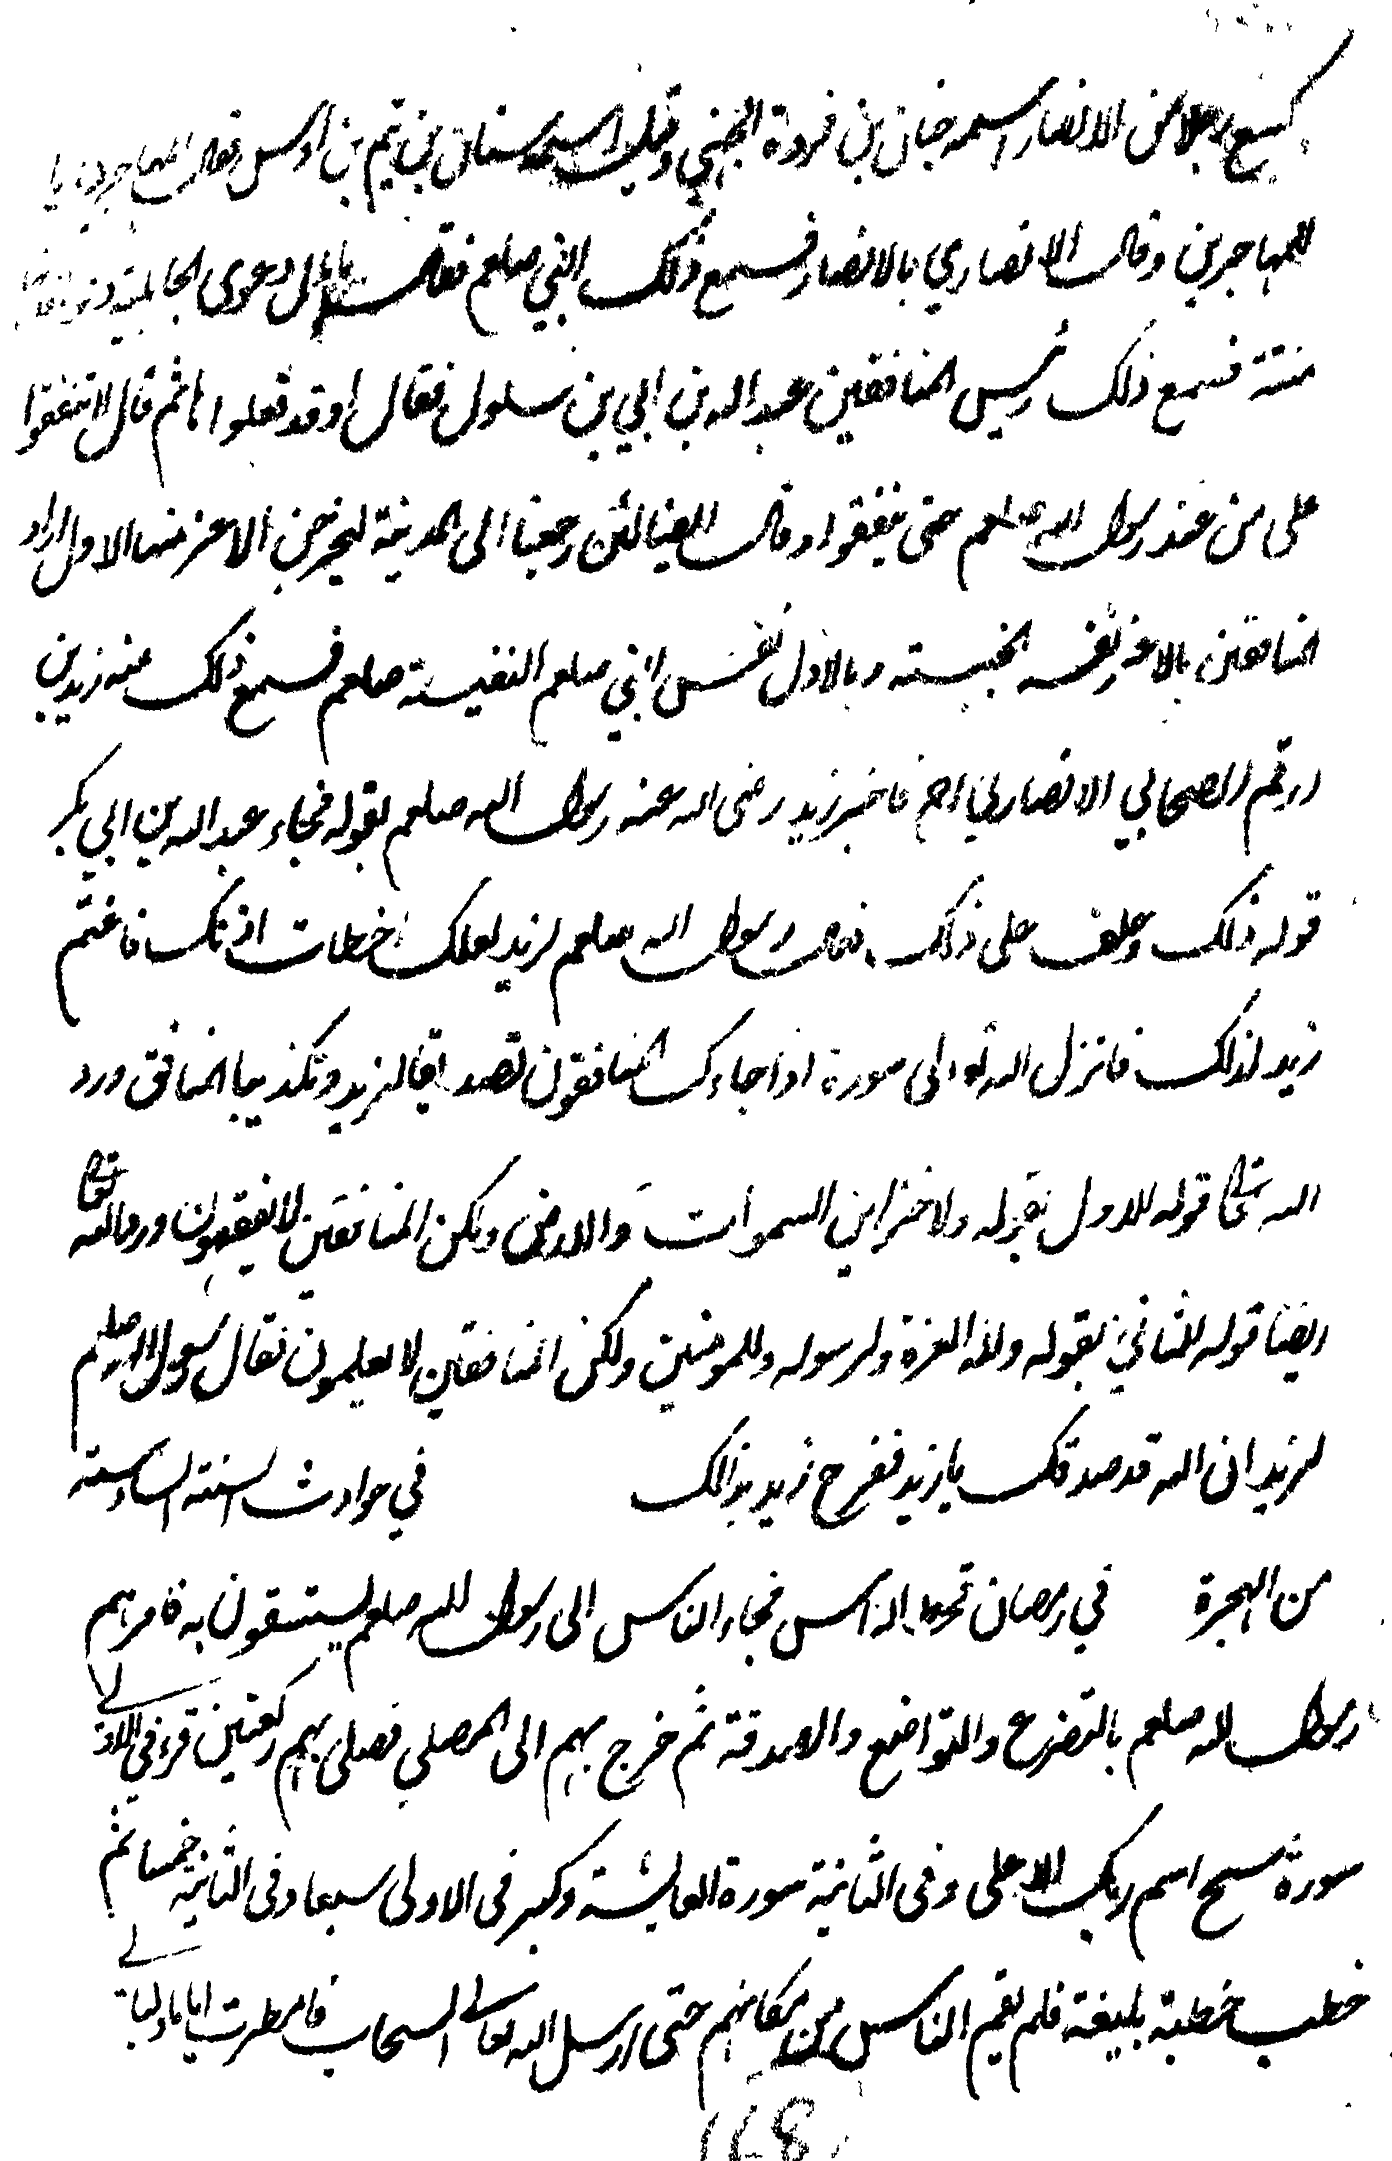 كسع رجلا من الانصار اسمه جنان بن فروة الجهني وقيل اسمه سنان بن تيم بن اوس فقال المهاجرون يا
للمهاجرين وقال الانصاري يا للانصار فسمع ذلك النبي صلعم فقال ما بال دعوى الجاهلية
منتنة فسمع ذلك رئيس المنافقين عبد الله بن ابي بن سلول فقال اوقد فعلوا ها ثم قال لا تنفقوا
على من عند رسول الله صلعم حتى ينفقوا وقال ايضا لئن رجعنا الى المدينة ليخرجن الاعز منها الاذل اراد
المنافقين بالاعز نفسه الخبيسته وبالاذل نفس النبي صلعم النفيسة صلعم فسمع ذلك عنه زيد بن
ارقم الصحابي الانصاري فاخبر زيد رضى الله عنه رسول الله صلعم بقوله فجاء عبد الله بن ابي بكر
قوله ذلك وحلف على ذلك فقال رسول الله صلعم لزيد لعلك اخطات اذنك فاغتم
زيد لذلك فانزل الله تعالى سورة اذا جاءك المنافقون تصديقا لزيد وتكذيبا لمنافق ورد
الله تعالى قوله للاول بقوله ولله خزاين السموات والارض ولكن المنافقين لا يفقهون ورد الله تعالى
ايضا قوله الثاني بقوله ولله العزة ولرسوله وللمومنين ولكن المنافقين لا يعلمون فقال رسول الله صلعم
لزيد ان الله قد صدقك يا زيد ففرح زيد بذالك في حوادث السنته السادسته
من الهجرة في رمضان قحط الناس فجاء الناس الى رسول الله صلعم ليستسقون به فامرهم
رسول الله صلعم بالتضرع والتواضع والصدقة ثم خرج بهم الى المصلي فصلى بهم ركعتين قرء في الاولى
سورة سبح اسم ربك الاعلى وفى الثانية سورة الغاشية وكبر فى الاولى سبعا وفى الثانية خمسا ثم
خطب خطبة بليغة فلم يقم الناس من مكانهم حتى ارسل الله تعالى السحاب فامطرت اياما وليالي